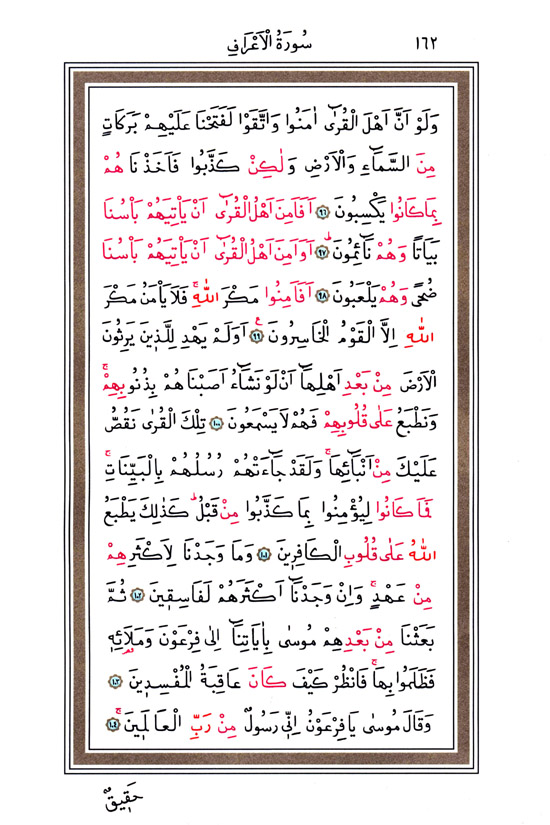 ١٦٢ سُورَةُ الْاَعْرَافِ
وَلَوْ اَنَّ اَهْلَ الْقُرٰٓى اٰمَنُوا وَاتَّقَوْا لَفَتَحْنَا عَلَيْهِمْ بَرَكَاتٍ
مِنَ السَّمَٓاءِ وَالْاَرْضِ وَلٰكِنْ كَذَّبُوا فَاَخَذْنَا هُمْ
بِمَا كَانُوا يَكْسِبُونَ ﴿٩٦﴾ اَفَاَمِنَ اَهْلُ الْقُرٰٓى اَنْ يَأْتِيَهُمْ بَأْسُنَا
بَيَاتًا وَهُمْ نَٓائِمُونَۜ ﴿٩٧﴾ اَوَاَمِنَ اَهْلُ الْقُرٰٓى اَنْ يَأْتِيَهُمْ بَأْسُنَا
ضُحًى وَهُمْ يَلْعَبُونَ ﴿٩٨﴾ اَفَاَمِنُوا مَكْرَ اللّٰهِۚ فَلَا يَأْمَنُ مَكْرَ
اللّٰهِ اِلَّا الْقَوْمُ الْخَاسِرُونَ۟ ﴿٩٩﴾ اَوَلَمْ يَهْدِ لِلَّذ۪ينَ يَرِثُونَ
الْاَرْضَ مِنْ بَعْدِ اَهْلِهَٓا اَنْ لَوْ نَشَٓاءُ اَصَبْنَا هُمْ بِذُنُوبِهِمْۚ
وَنَطْبَعُ عَلٰى قُلُوبِهِمْ فَهُمْ لَا يَسْمَعُونَ ﴿١٠٠﴾ تِلْكَ الْقُرٰى نَقُصُّ
عَلَيْكَ مِنْ اَنْبَٓائِهَاۚ وَلَقَدْ جَٓاءَتْهُمْ رُسُلُهُمْ بِالْبَيِّنَاتِۚ
فَمَا كَانُوا لِيُؤْمِنُوا بِمَا كَذَّبُوا مِنْ قَبْلُۜ كَذٰلِكَ يَطْبَعُ
اللّٰهُ عَلٰى قُلُوبِ الْكَافِر۪ينَ ﴿١٠١﴾ وَمَا وَجَدْنَا لِاَكْثَرِهِمْ
مِنْ عَهْدٍۚ وَاِنْ وَجَدْنَٓا اَكْثَرَهُمْ لَفَاسِق۪ينَ ﴿١٠٢﴾ ثُمَّ
بَعَثْنَا مِنْ بَعْدِهِمْ مُوسٰى بِاٰيَاتِنَٓا اِلٰى فِرْعَوْنَ وَمَلَا۬ئِه۪
فَظَلَمُوا بِهَاۚ فَانْظُرْ كَيْفَ كَانَ عَاقِبَةُ الْمُفْسِد۪ينَ ﴿١٠٣﴾
وَقَالَ مُوسٰى يَا فِرْعَوْنُ اِنّ۪ي رَسُولٌ مِنْ رَبِّ الْعَالَم۪ينَۚ ﴿١٠٤﴾
حَق۪يقٌ